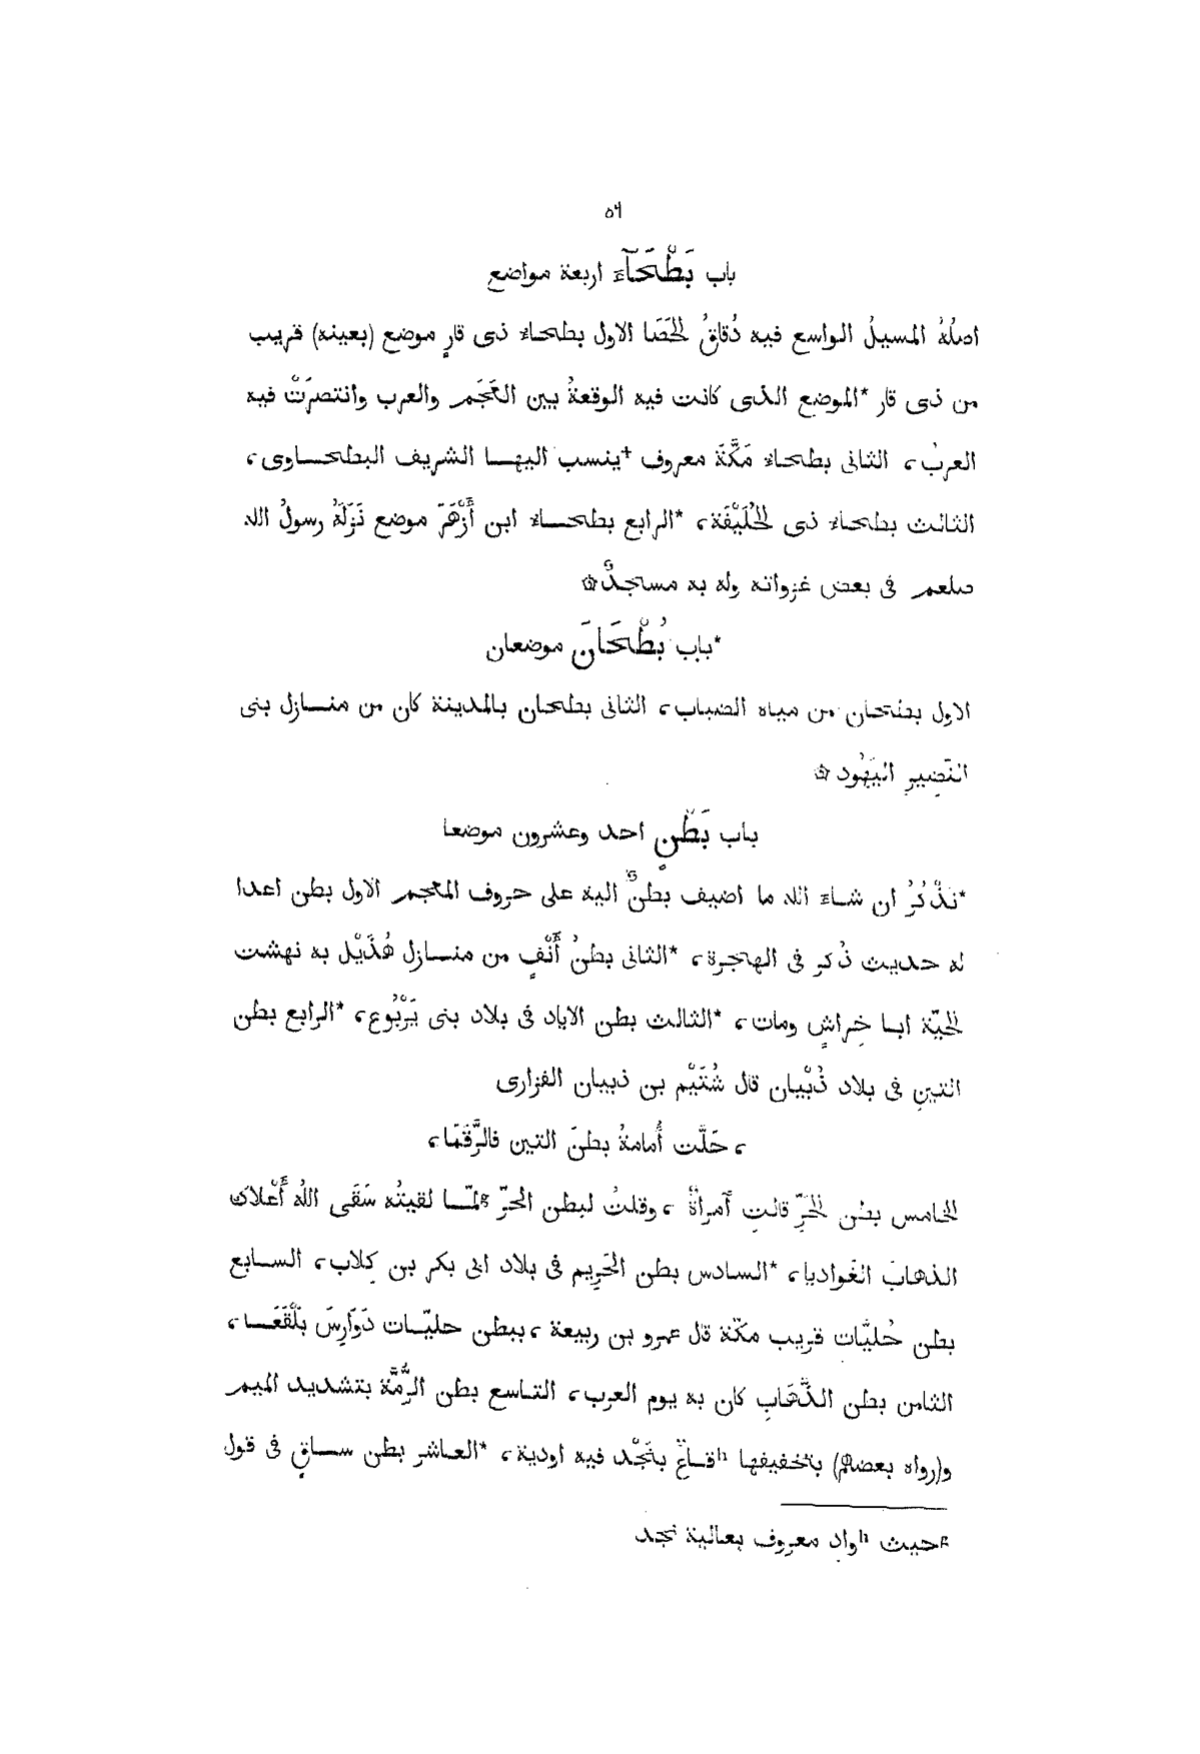 ٥٩
باب بَطْحَآءَ اربعة مواضع
اصلُهُ المسيلُ الواسع فيه دُقاقُ الحَصَا الاول بطحاء ذى قارٍ موضع (بعينه) قريب
من ذى قار *الموضع الذى كانت فيه الوقعةُ بين العَجَم والعرب وانتصرَتْ فيه
العربُ، الثانى بطحاء مَكَّةَ معروف +ينسب اليهـا الشريف البطحـاوى،
الثالث بطحاء ذى الحُلَيْفَة، *الرابع بطحـاء ابن أَزْهَرَ موضع نَزَلَهُ رسولُ الله
صلعم فى بعض غزواته وله به مسجدٌ ۞
*باب بُطْحَانَ موضعان
الاول بطحان من مياه الضباب، الثانى بطحان بالمدينة كان من منـازل بنى
النَّضِير اليَهُود ۞
باب بَطْنٍ احد وعشرون موضعا
*نَذْكُرُ ان شـاء الله ما اضيف بطنٌ اليه على حروف المعجم الاول بطن اعدا
له حديث ذُكر فى الهجرة، *الثانى بطنُ أَنْفٍ من منـازل هُذَيْل به نهشت
الحيّة ابـا خِراشٍ ومات، *الثالث بطن الاياد فى بلاد بنى يَرْبُوع، *الرابع بطن
التينِ فى بلاد ذُبْيان قال شُتَيْم بن ذبيان الفزارى
، حَلَّت أُمامةُ بطنَ التين فالرَّقَمَا،
الخامس بطن الحَرِّ قالتِ آمراةٌ ، وقلتُ لبطن الحرّ gلمّـا لقيتُه سَقَى اللهُ أَعْلاكَ
الذهابَ الغَواديا، *السادس بطن الحَرِيم فى بلاد ابى بكر بن كِلاب، السـابع
بطن حُليَّات قريب مكّة قال عمرو بن ربيعة ،ببطن حليّـات دَوَارِسَ بَلْقَعَـا،
الثامن بطن الذَّهَابِ كان به يوم العرب، التـاسع بطن الرُّمَّة بتشديد الميم
و(رواه بعضهم) بتخفيفها hقـاعٌ بنَجْد فيه اودية، *العـاشر بطن سـاقٍ فى قول
gحيث hواد معروف بعالية نجد